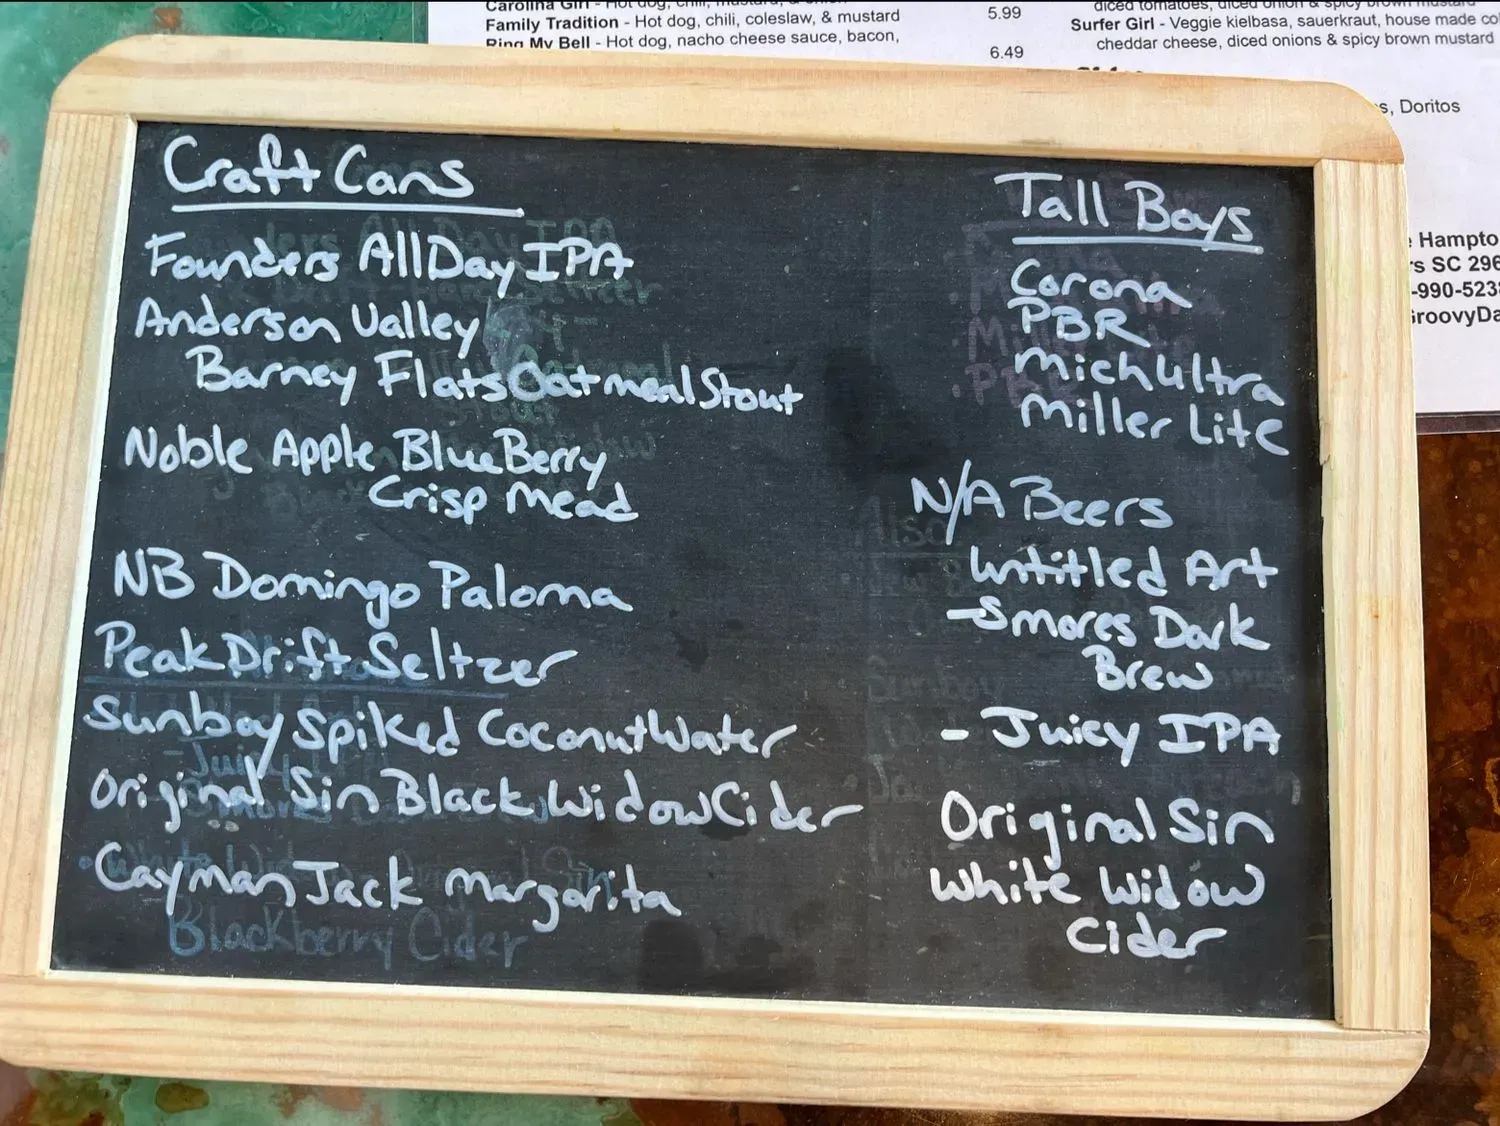 Carolina Girl - Hot dog, chili, mustard, & onion
Family Tradition - Hot dog, chili, coleslaw, & mustard
5.99
Ring My Bell - Hot dog, nacho cheese sauce, bacon,
6.49
diced tomatoes, diced onion & spicy brown mustard
Surfer Girl - Veggie kielbasa, sauerkraut, house made co
cheddar cheese, diced onions & spicy brown mustard
s, Doritos
Hampto
rs SC 296
-990-523
GroovyDa
Craft Cans
Founders All Day IPA
Anderson Valley
Barney Flats Oatmeal Stout
Noble Apple BlueBerry
Crisp Mead
NB Domingo Paloma
Peak Drift Seltzer
Sunboy Spiked Coconut Water
Original Sin Black Widow Cider
Cayman Jack Margarita
Blackberry Cider
Tall Boys
Corona
PBR
Mich Ultra
Miller Lite
N/A Beers
Untitled Art
- Smores Dark
Brew
- Juicy IPA
Original Sin
White Widow
Cider